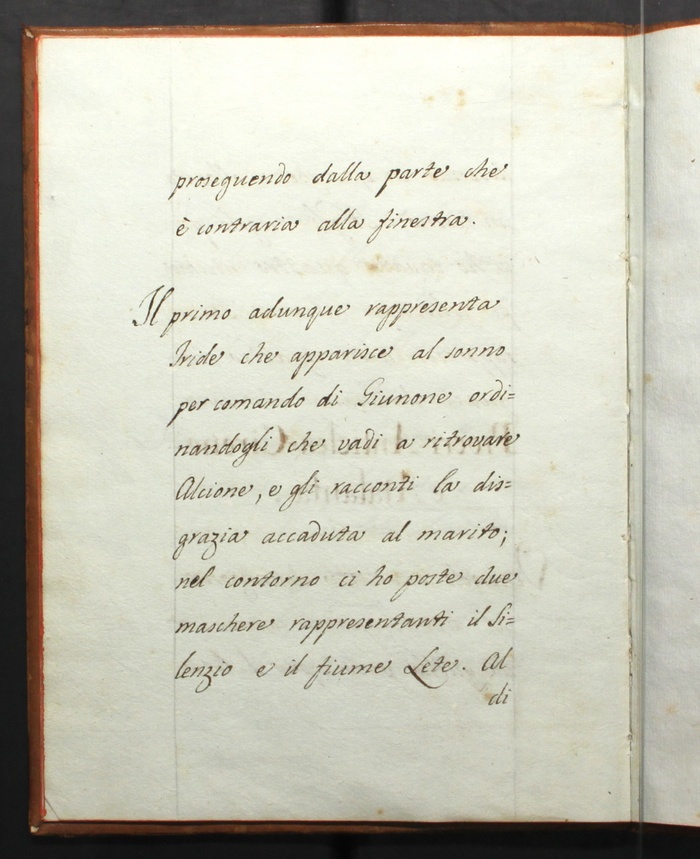 proseguendo dalla parte che
è contraria alla finestra.
Il primo adunque rappresenta
Iride che apparisce al sonno
per comando di Giunone ordi=
nandogli che vadi a ritrovare
Alcione, e gli racconti la dis=
grazia accaduta al marito;
nel contorno ci ho poste due
maschere rappresentanti il Si=
lenzio e il fiume Lete. Al
di